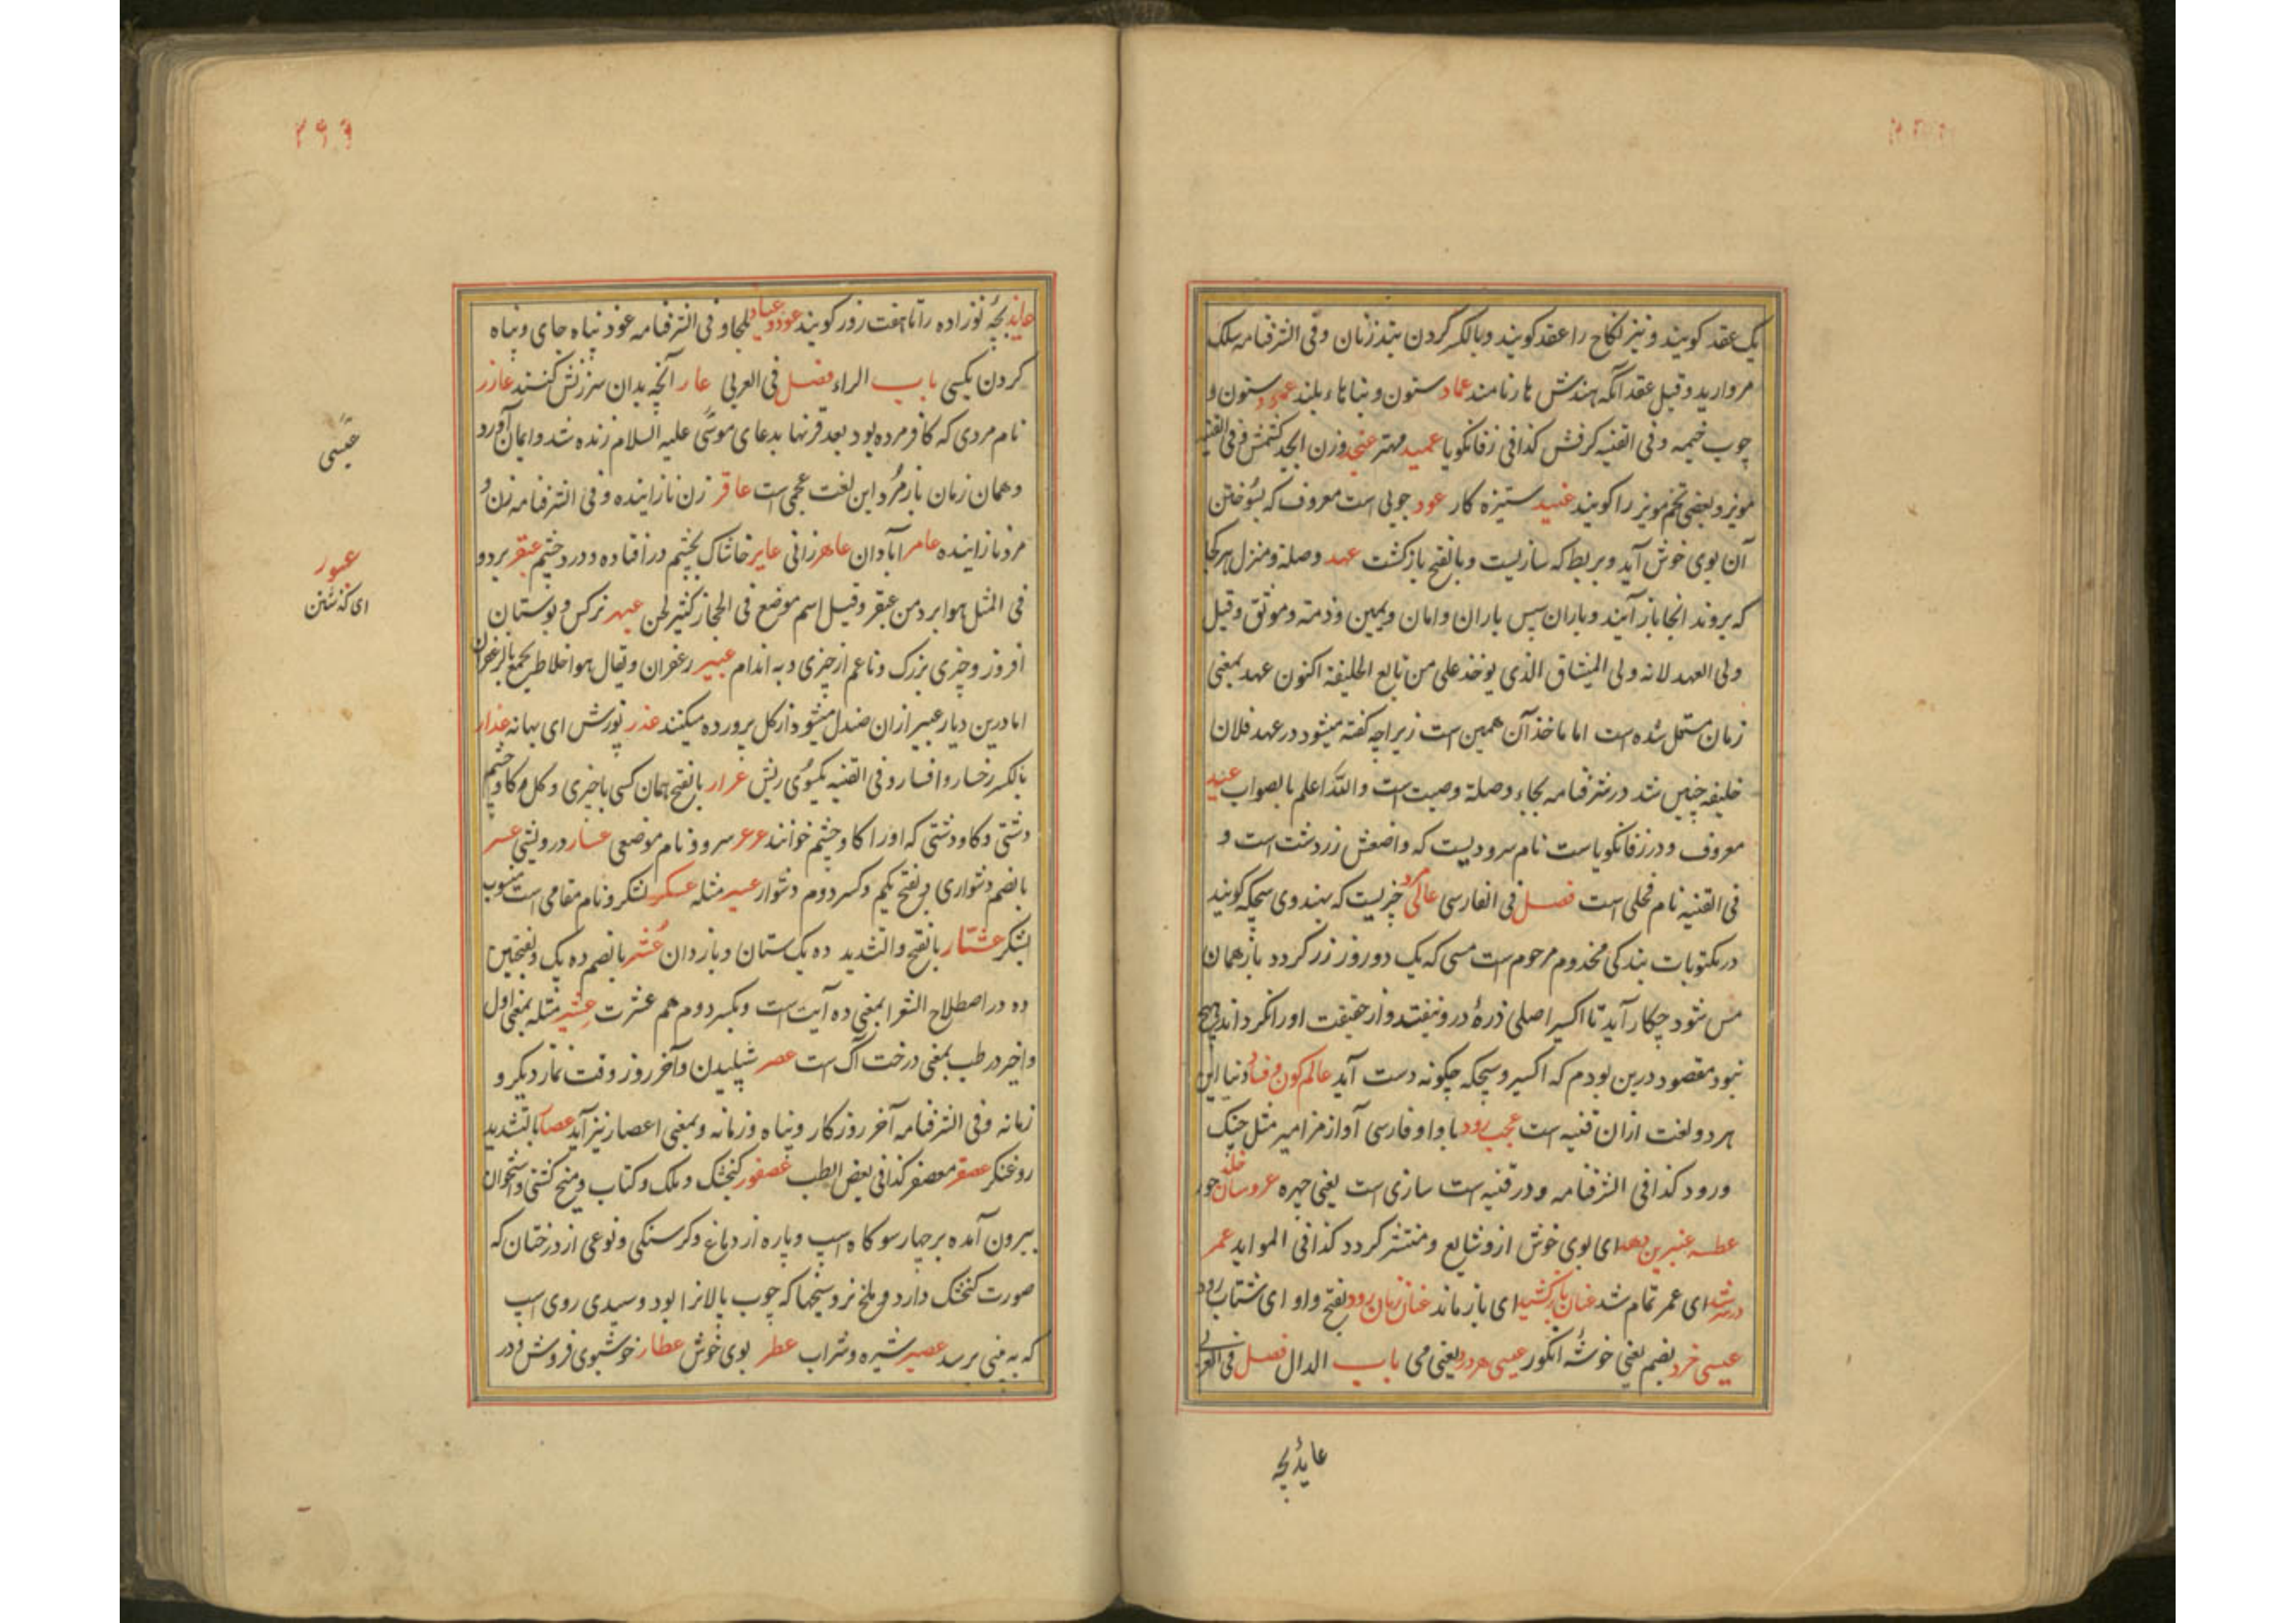 یک عقد کویند و نیز نکاح را عقد کویند و بالکسر کردن بند زنان و فی الشرفنامه سلک
مروارید و قیل عقد آنکه بهندش هار نامند عماد ستون و بناهاء بلند عمود ستون و
چوب خیمه و فی القنیه کرفش کذا فی زفانکویا عمید مهتر عنجد وزن ابجد کشمش و فی القنیه
مویز و بعضی تخم مویز را کویند عنید ستیزه کار عود چوبی است معروف که بسوختن
آن بوی خوش آید و بربط که سازیست و بالفتح بازکشت عهد وصلة و منزل هرکجا
که بروند انجا باز آیند و باران سپس باران و امان و یمین و ذمه و موثق و قیل
ولی العهد لانه ولی المیثاق الذی یوخذ علی من تابع الخلیفة اکنون عهد بمعنی
زمان مستعمل شده است اما ماخذ آن همین است زیراچه کفته میشود در عهد فلان
خلیفه چنین شد در شرفنامه بجاء وصلة وصیت است والله اعلم بالصواب عید
معروف و در زفانکویاست نام سرودیست که واضعش زردشت است و
فی القنیه نام فحلی است فصل فی الفارسی چیزیست که بهندوی سیچکه کویند
در مکتوبات بندکی مخدوم مرحوم است مسی که یک دو روز زر کردد باز همان
مس شود چکار آید تا اکسیر اصلی ذرهٔ درو نیفتد و از حقیقت او را نکرداند هیچ
نبود مقصود درین بودم که اکسیر و سیچکه چکونه دست آید عالم کون و فساد دنیا این
هر دو لغت ازان قنیه است عجب رود باواو فارسی آواز مزامیر مثل چنک
و رود کذا فی الشرفنامه و در قنیه است سازی است یعنی چهره عروسان خلد حور
عطسه عنبرین دهد ای بوی خوش ازو شایع و منتشر کردد کذا فی الموائد عمر
درشد ای عمر تمام شد عنان باز کشید ای باز ماند عنان زنان رود بفتح واو ای شتاب رود
عیسی خرد بضم یعنی خوشهٔ انکور عیسی هر درد یعنی می باب الدال فصل فی العربی
عایذ بچه
۳۶۹
عایذ بچهٔ نوزاده را تا هفت روز کویند عوذ و عیاذ ملجا و فی الشرفنامه عوذ پناه جای و پناه
کردن بکسی باب الراء فصل فی العربی عار آنچه بدان سرزنش کنند عازر
نام مردی که کافر مرده بود بعد قرنها بدعای موسی علیه السلام زنده شد و ایمان آورد
و همان زمان باز مرد این لغت عجمی است عاقر زن نازاینده و فی الشرفنامه زن و
مرد نازاینده عامر آبادان عاهر زانی عایر خاشاک بچشم در افتاده و درد چشم عبقر برد و
فی المثل هو ابرد من عبقر و قیل اسم موضع فی الحجاز کثیر الجن عبهر نرکس و بوستان
افروز و چیزی بزرک و ناعم از چیزی و به اندام عبیر زعفران و یقال هو اخلاط تجمع بالزعفران
اما درین دیار عبیر ازان صندل میشود از کل پرورده میکنند عذر پوزش ای بهانه عذار
بالکسر رخسار و افسار و فی القنیه یکسوی ریش عرار بالفتح همان کسی باچیزی و کل و کاو چشم
دشتی و کاو دشتی که او را کاو چشم خوانند عرعر سرو و نام موضعی عسار درویشی عسر
بالضم دشواری و بفتح یکم و کسر دوم دشوار عسیر مثله عسکر لشکر و نام مقامی است منسوب
لشکر عشار بالفتح و التشدید ده یک ستان و بازدان عشر بالضم ده یک و بفتحین
ده در اصطلاح الشعرا بمعنی ده آیت است و بکسر دوم هم عشرت عشیر مثله بمعنی اول
و اخیر در طب بمعنی درخت آک است عصر شپلیدن و آخر روز وقت نماز دیکر و
زمانه و فی الشرفنامه آخر روزکار و پناه و زمانه و بمعنی اعصار نیز آید عصار بالتشدید
روغنکر عصفر معصفر کذا فی بعض الطب عصفور کنجشک و ملک و کتاب و میخ کشتی و استخوان
بیرون آمده بر چهار سو کاه اسپ و پاره از دماغ و کرسنکی و نوعی از درختان که
صورت کنجشک دارد و ملخ نر و سیخها که چوب پالان را بود و سپیدی روی اسپ
که به بینی برسد عصیر شیره و شراب عطر بوی خوش عطار خوشبوی فروش و در
عیسی
عبور
ای کذشتن